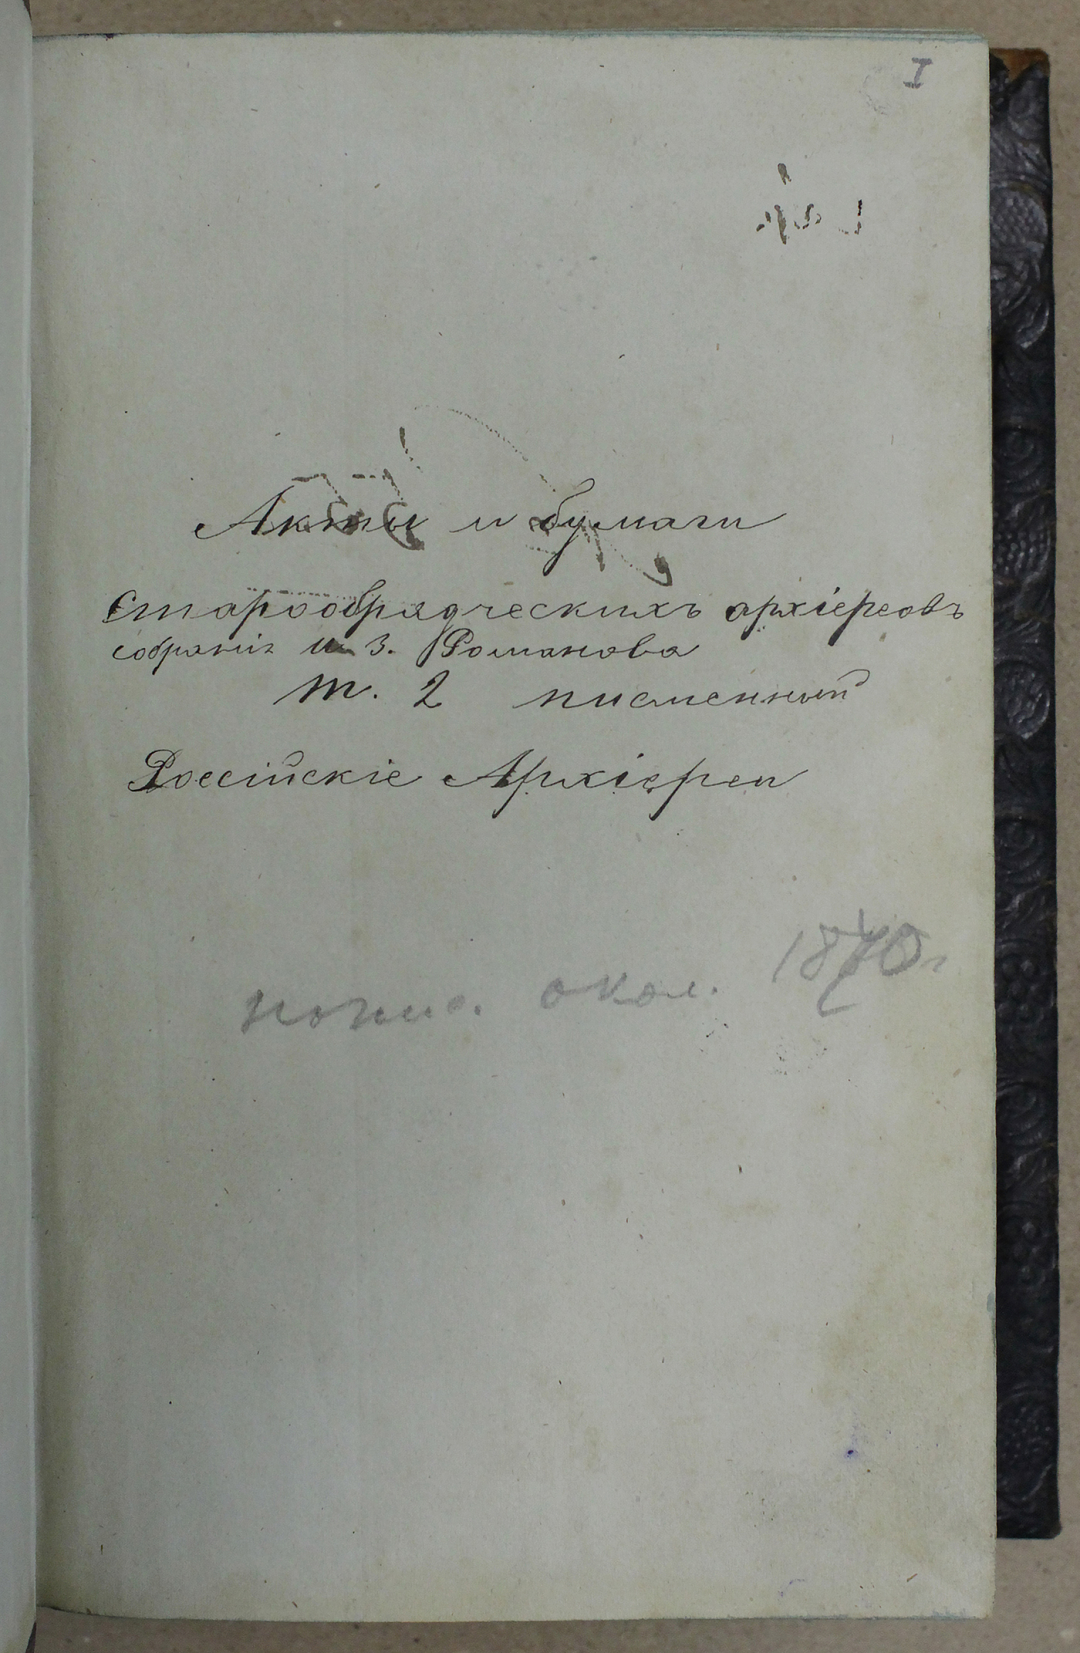 I
Акты и бумаги
старообрядческихъ архіереовъ
собранія И З. Романова
т. 2 писменный
Россійскіе Архіереи
окол. 1870 г